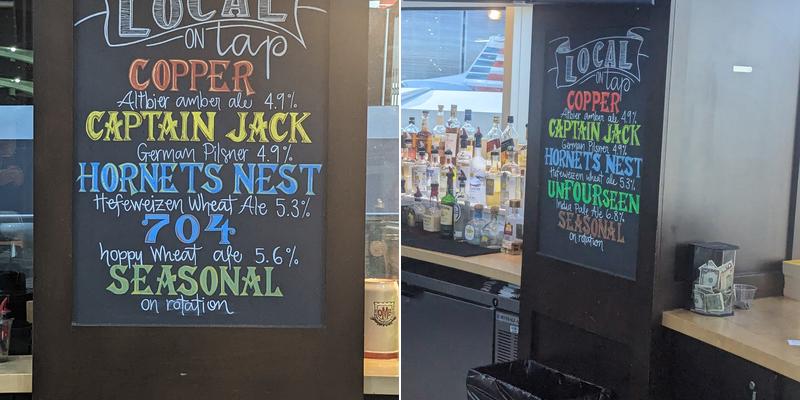 LOCAL
ON tap
COPPER
Altbier amber ale 4.9%
CAPTAIN JACK
German Pilsner 4.9%
HORNETS NEST
Hefeweizen Wheat Ale 5.3%
704
hoppy wheat ale 5.6%
SEASONAL
on rotation
OMB
LOCAL
on tap
COPPER
Altbier amber ale 4.9%
CAPTAIN JACK
German Pilsner 4.9%
HORNETS NEST
Hefeweizen wheat ale 5.3%
UNFOURSEEN
India Pale Ale 6.8%
SEASONAL
on rotation